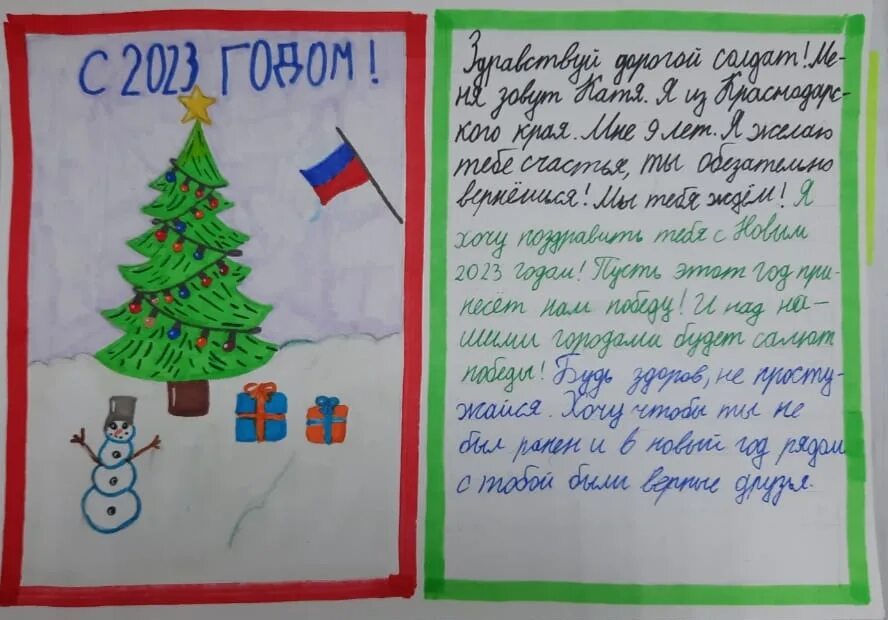 С 2023 ГОДОМ!
Здравствуй дорогой солдат! Ме-
ня зовут Катя. Я из Краснодарс-
кого края. Мне 9 лет. Я желаю
тебе счастья, ты обезательно
вернёшися! Мы тебя ждём! Я
хочу поздравить тебя с Новым
2023 годам! Пусть этот год при-
несёт нам победу! И над на-
шими городами будет салют
победы! Будь здоров, не просту-
жайся. Хочу чтобы ты не
был ранен и в новый год рядом
с тобой были верные друзья.